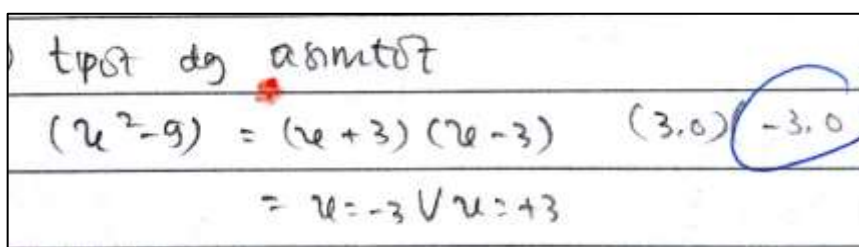 ) tipot dg asimtot
(x²-9) = (x+3)(x-3) (3.0)(-3.0
= x=-3 V x=+3